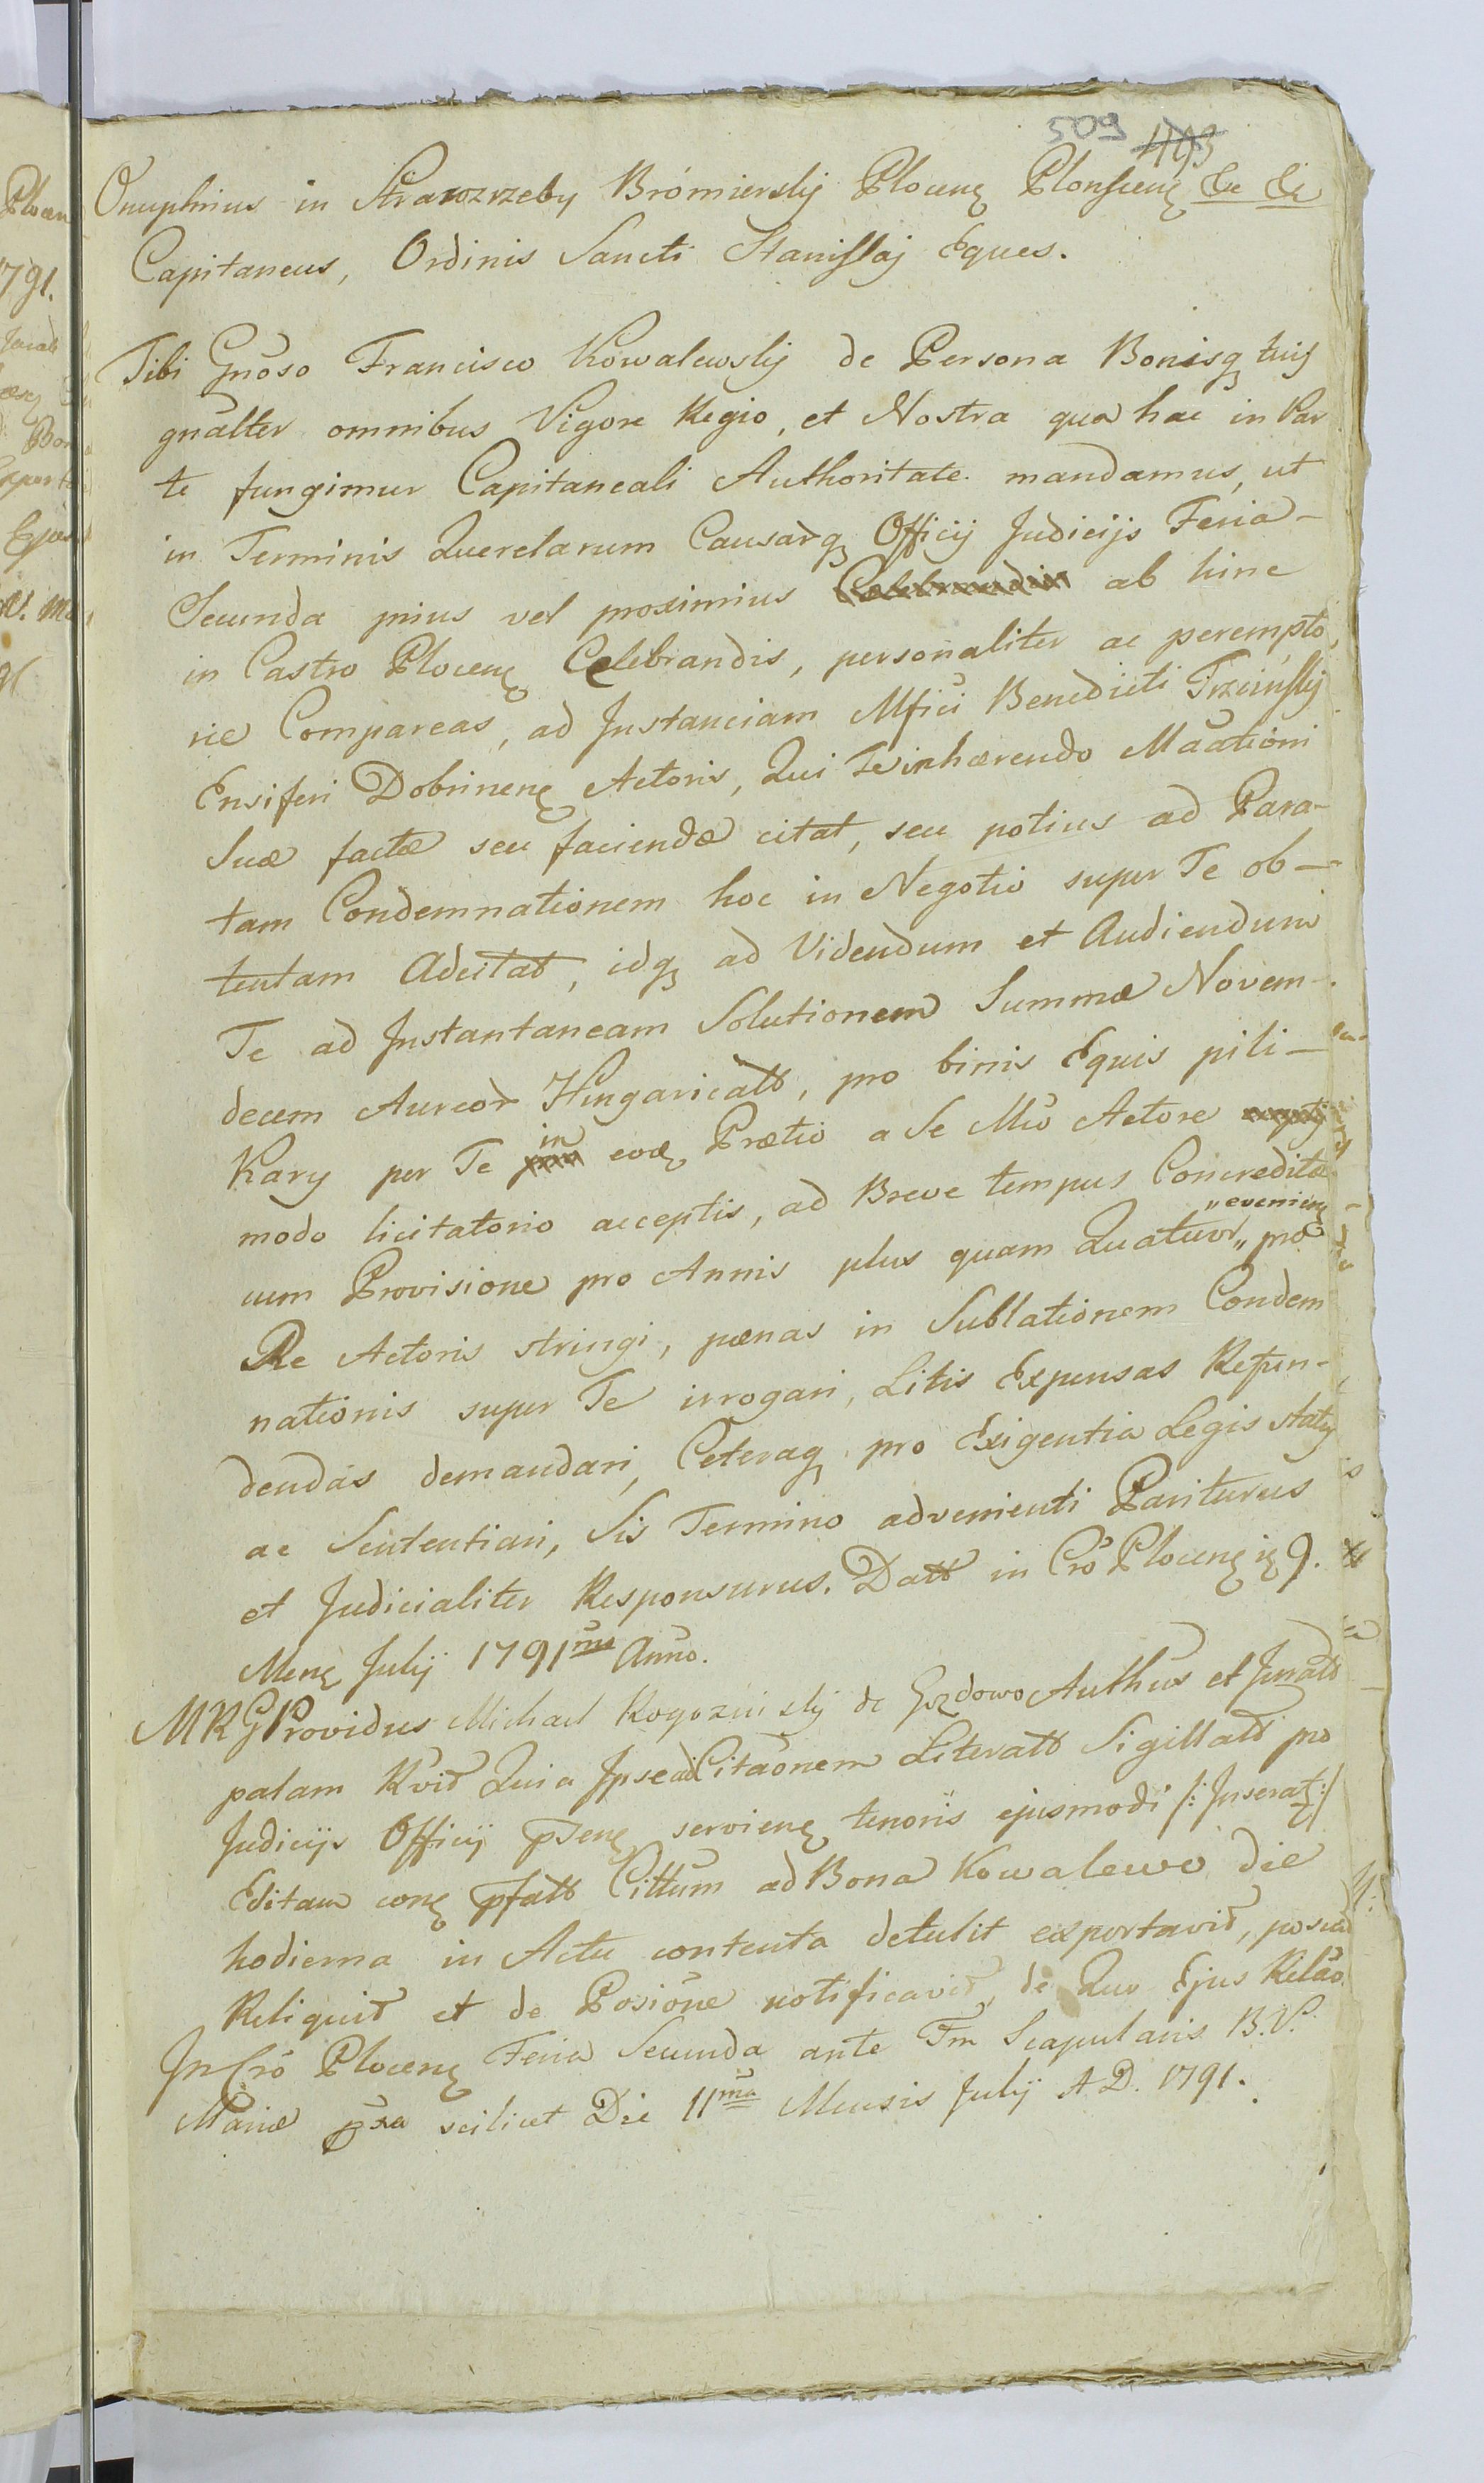 509 493
Onuphrius in Strawzrzeby Brómierskij Plocenȩ Plonscenȩ &c &c
Capitaneus, Ordinis Sancti Stanislaj Eques.
Tibi Gnōso Francisco Kowalewskij de Persona Bonisqȝ tuis
gnālter omnibus Vigore Regio, et Nostra qua hac in Par
te fungimur Capitaneali Authoritate mandamus, ut
in Terminis Querelarum Causarqȝ Officij Judicijs Feria-
Secunda prius vel proximius Celebrandis ab hinc
in Castro Plocenȩ Celebrandis, personaliter ac perempto
rie Compareas, ad Instanciam Mfici Benedicti Trzcinskij
Ensiferi Dobrinenȩ Actoris, Qui Te inhærendo Maātioni
Suæ factæ seu faciendæ citat, seu potius ad Para-
tam Condemnationem hoc in Negotio super Te ob-
tentam Adcitat, idqȝ ad Videndum et Audiendum
Te ad Instantaneam Solutionem Summæ Novem-
decem Aureor Hungaricalt, pro binis Equis pili-
Kary per Te in eoȩ Prætio a Se Mō Actore
modo licitatorio acceptis, ad Breve tempus Concreditæ
„evenienȩ
cum Provisione pro Annis plus quam Quatuor„ pro
Re Actoris stringi, pænas in Sublationem Condem
nationis super Te irrogari, Litis Expensas Refun-
dendas demandari, Ceteraqȝ pro Exigentia Legis statuj
ac Sententiari, Sis Termino advenienti Pariturus
et Judicialiter Responsurus. Datt in Crō Plocenȩ 9.
Menȩ Julij 1791mo Anno.
MRG Providus Michael Rogozinskij de Gozdowo Authūs et Juratt
palam Rvit Quia Ipse ad Citaōnem Literatt Sigillatt pro
Judicijs Officij pŝenȩ servienȩ tenoris ejusmodi /: Inserat :/
Editam conȩ pfatt Cittum ad Bona Kowalewo die
hodierna in Actu contenta detulit exportavit, posuit
Reliquit et de Posiōne notificavit, de Quo Ejus Relāo.
In Crō Plocenȩ Feria Secunda ante Fm Scapularis B.V.
Mariæ pxa scilicet Die 11ma Mensis Julij A D. 1791.